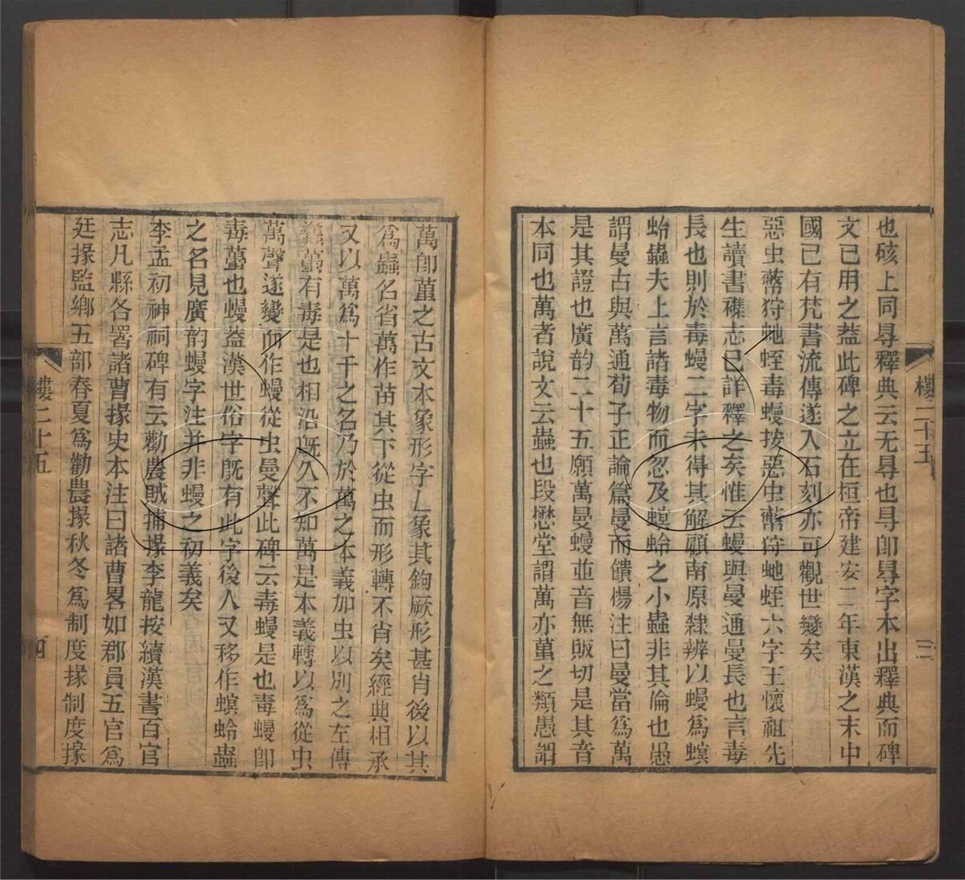 也硋上同㝵釋典云无㝵也㝵卽㝵字本出釋典而碑
文已用之葢此碑之立在桓帝建安二年東漢之末中
國已有梵書流傳遂入石刻亦可觀世變矣
惡虫蔽狩虵蛭毒蟃拔惡虫蔽狩虵蛭六字王懷祖先
生讀書襍志已詳釋之矣惟云蟃與曼通曼長也言毒
長也則於毒蟃二字未得其解顧南原隸辨以蟃爲螟
蛉蟲夫上言諸毒物而忽及螟蛉之小蟲非其倫也愚
謂曼古與萬通荀子正論篇曼而饋楊注曰曼當爲萬
是其證也廣韵二十五願萬曼蟃並音無販切是其音
本同也萬者說文云蟲也段懋堂謂萬亦蠆之類愚謂
樓二十五
三
萬卽蠆之古文本象形字乚象其鉤厥形甚肖後以其
爲蟲名省萬作苗其下從虫而形轉不肖矣經典相承
又以萬爲十千之名乃於萬之本義加虫以別之左傳
蠭蠆有毒是也相沿旣久不知萬是本義轉以爲從虫
萬聲遂變而作蟃從虫曼聲此碑云毒蟃是也毒蟃卽
毒蠆也蟃葢漢世俗字旣有此字後人又移作螟蛉蟲
之名見廣韵蟃字注并非蟃之初義矣
李孟初神祠碑有云勸農賊捕掾李龍按續漢書百官
志凡縣各署諸曹掾史本注曰諸曹畧如郡員五官爲
廷掾監鄉五部春夏爲勸農掾秋冬爲制度掾制度掾
樓二十五
四